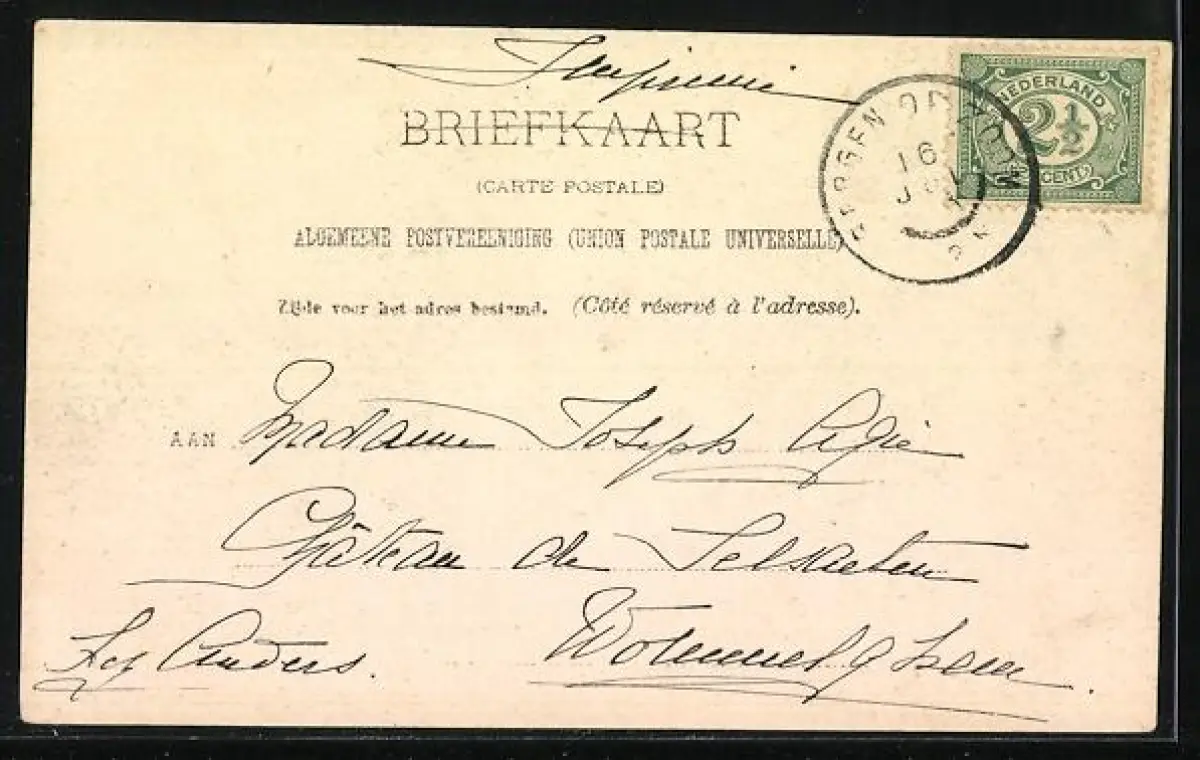 Imprimé
BRIEFKAART
(CARTE POSTALE)
ALGEMEENE POSTVEREENIGING (UNION POSTALE UNIVERSELLE)
Zijde voor het adres bestemd. (Côté réservé à l'adresse).
NEDERLAND
2½
CENT
BERGEN OP ZOOM
16
AAN Madame Joseph
Château de
Wommelghem.